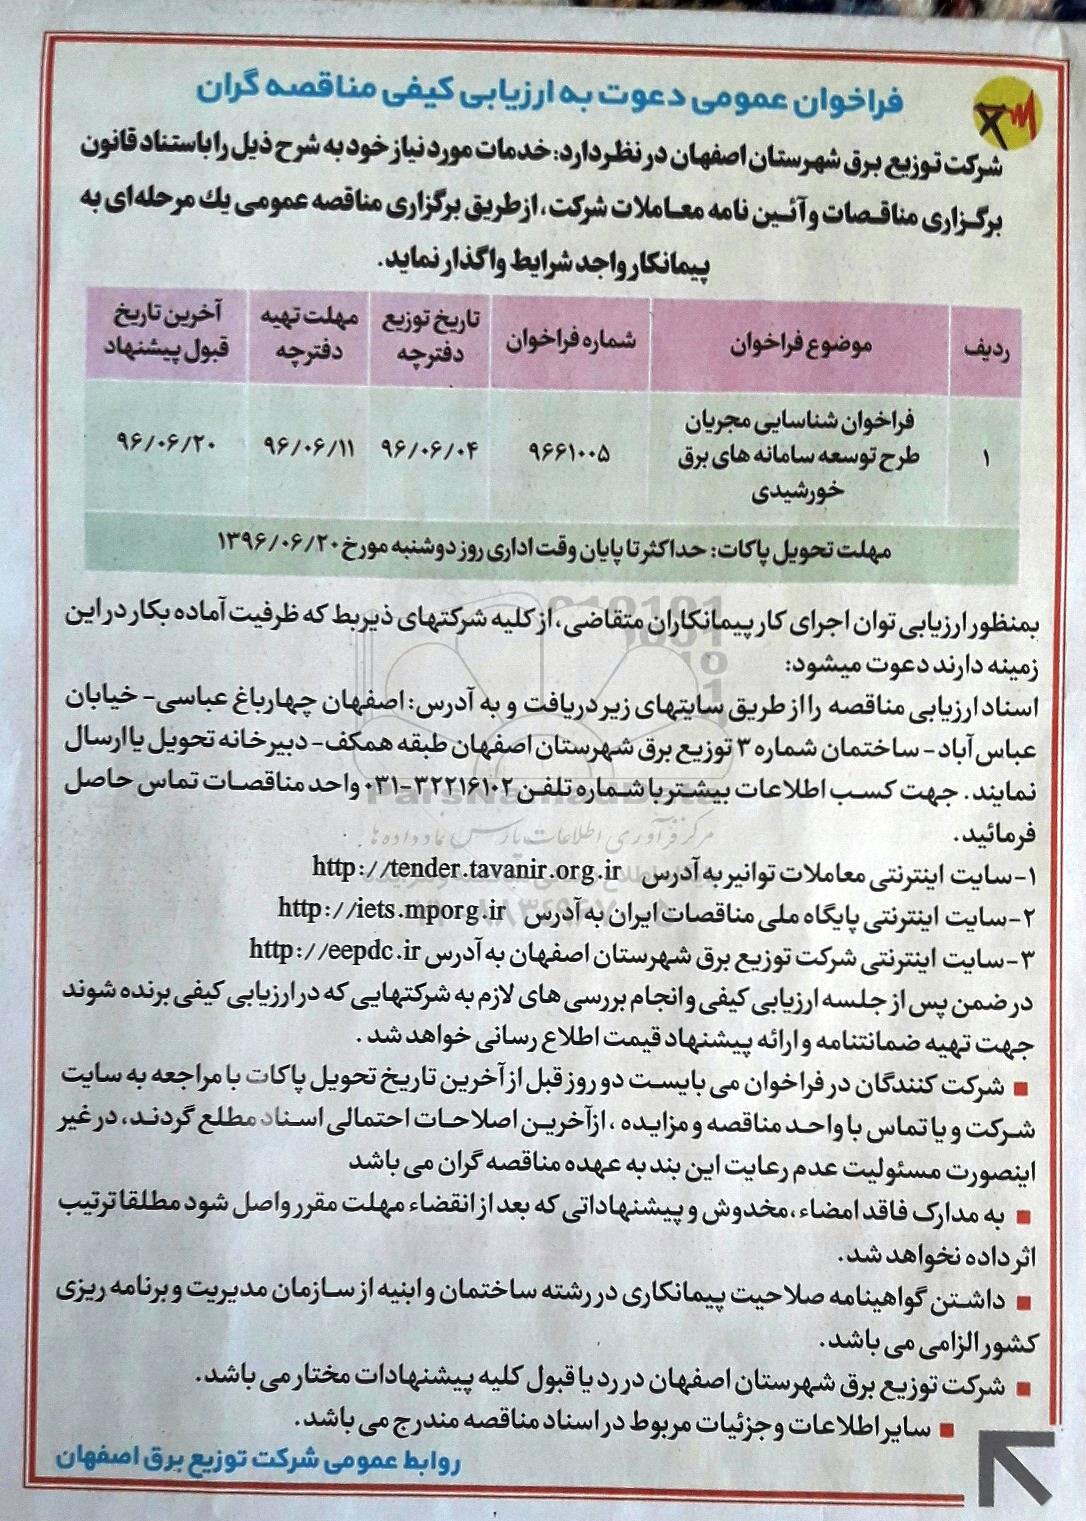 فراخوان عمومی دعوت به ارزیابی کیفی مناقصه گران
شرکت توزیع برق شهرستان اصفهان در نظر دارد: خدمات مورد نیاز خود به شرح ذیل را باستناد قانون
برگزاری مناقصات و آئین نامه معاملات شرکت، از طریق برگزاری مناقصه عمومی یك مرحله‌ای به
پیمانکار واجد شرایط واگذار نماید.
ردیف | موضوع فراخوان | شماره فراخوان | تاریخ توزیع دفترچه | مهلت تهیه دفترچه | آخرین تاریخ قبول پیشنهاد
۱ | فراخوان شناسایی مجریان طرح توسعه سامانه های برق خورشیدی | ۹۶۶۱۰۰۵ | ۹۶/۰۶/۰۴ | ۹۶/۰۶/۱۱ | ۹۶/۰۶/۲۰
مهلت تحویل پاکات: حداکثر تا پایان وقت اداری روز دوشنبه مورخ ۱۳۹۶/۰۶/۲۰
بمنظور ارزیابی توان اجرای کار پیمانکاران متقاضی، از کلیه شرکتهای ذیربط که ظرفیت آماده بکار در این
زمینه دارند دعوت میشود:
اسناد ارزیابی مناقصه را از طریق سایتهای زیر دریافت و به آدرس: اصفهان چهارباغ عباسی- خیابان
عباس آباد - ساختمان شماره ۳ توزیع برق شهرستان اصفهان طبقه همکف- دبیرخانه تحویل یا ارسال
نمایند. جهت کسب اطلاعات بیشتر با شماره تلفن ۳۲۲۱۶۱۰۲-۰۳۱ واحد مناقصات تماس حاصل
فرمائید.
ParsNamadData
مرکز فرآوری اطلاعات پارس نماد داده ها
۱-سایت اینترنتی معاملات توانیر به آدرس http://tender.tavanir.org.ir
۲-سایت اینترنتی پایگاه ملی مناقصات ایران به آدرس http://iets.mporg.ir
۳-سایت اینترنتی شرکت توزیع برق شهرستان اصفهان به آدرس http://eepdc.ir
در ضمن پس از جلسه ارزیابی کیفی و انجام بررسی های لازم به شرکتهایی که در ارزیابی کیفی برنده شوند
جهت تهیه ضمانتنامه و ارائه پیشنهاد قیمت اطلاع رسانی خواهد شد .
■ شرکت کنندگان در فراخوان می بایست دو روز قبل از آخرین تاریخ تحویل پاکات با مراجعه به سایت
شرکت و یا تماس با واحد مناقصه و مزایده ، از آخرین اصلاحات احتمالی اسناد مطلع گردند، در غیر
اینصورت مسئولیت عدم رعایت این بند به عهده مناقصه گران می باشد
■ به مدارک فاقد امضاء ،مخدوش و پیشنهاداتی که بعد از انقضاء مهلت مقرر واصل شود مطلقا ترتیب
اثر داده نخواهد شد.
■ داشتن گواهینامه صلاحیت پیمانکاری در رشته ساختمان و ابنیه از سازمان مدیریت و برنامه ریزی
کشور الزامی می باشد.
■ شرکت توزیع برق شهرستان اصفهان در رد یا قبول کلیه پیشنهادات مختار می باشد.
■ سایر اطلاعات و جزئیات مربوط در اسناد مناقصه مندرج می باشد.
روابط عمومی شرکت توزیع برق اصفهان